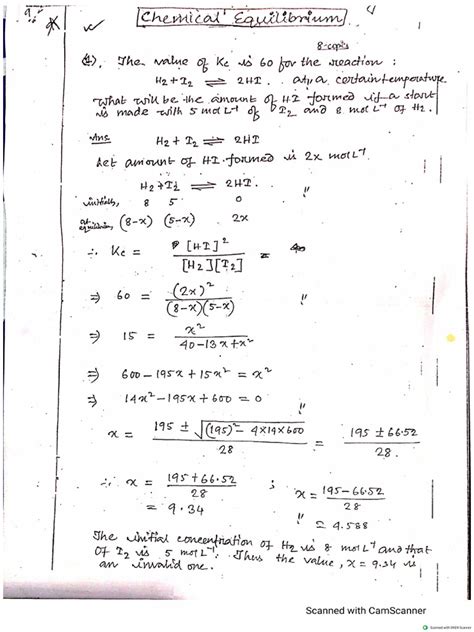 Chemical Equilibrium
8-copis
Q. The value of Kc is 60 for the reaction :
H2 + I2 ⇌ 2HI . at a certain temperature.
What will be the amount of HI formed if a start
is made with 5 mol L⁻¹ of I2 and 8 mol L⁻¹ of H2.
Ans H2 + I2 ⇌ 2HI
Let amount of HI formed is 2x mol L⁻¹
H2 + I2 ⇌ 2HI .
initially, 8 5 0 "
at equilibrium, (8-x) (5-x) 2x
∴ Kc = [HI]² / [H2][I2] =
⇒ 60 = (2x)² / (8-x)(5-x) "
⇒ 15 = x² / 40-13x+x²
⇒ 600-195x+15x² = x²
⇒ 14x²-195x+600 = 0 "
x = 195 ± √(195)² - 4×14×600 / 28 = 195 ± 66.52 / 28.
∴ x = 195+66.52 / 28 ; x = 195-66.52 / 28
= 9.34 " = 4.588
The initial concentration of H2 is 8 mol L⁻¹ and that
of I2 is 5 mol L⁻¹. Thus the value, x = 9.34 is
an invalid one.
Scanned with CamScanner
Scanned with OKEN Scanner